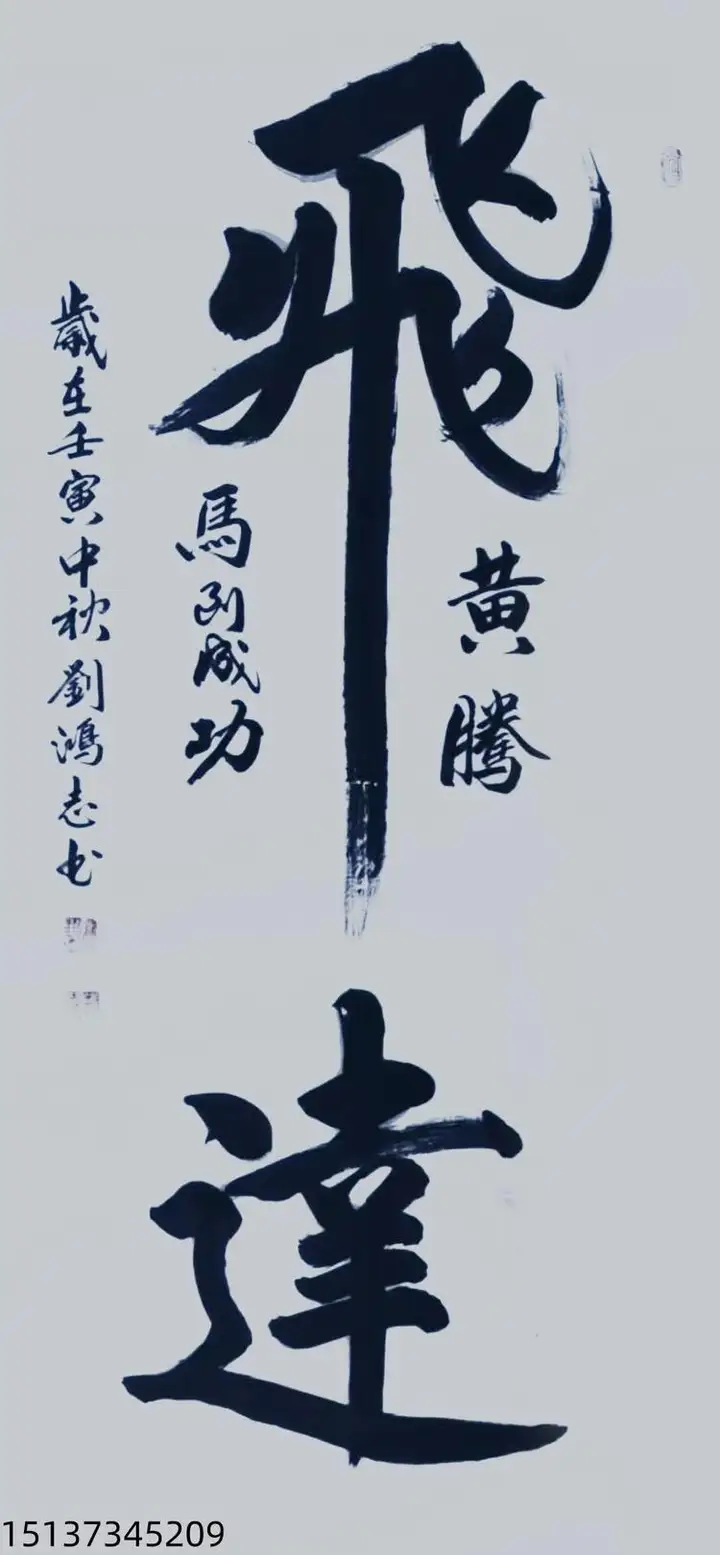 飛達
黄騰
馬到成功
歲在壬寅中秋劉鴻志书
15137345209